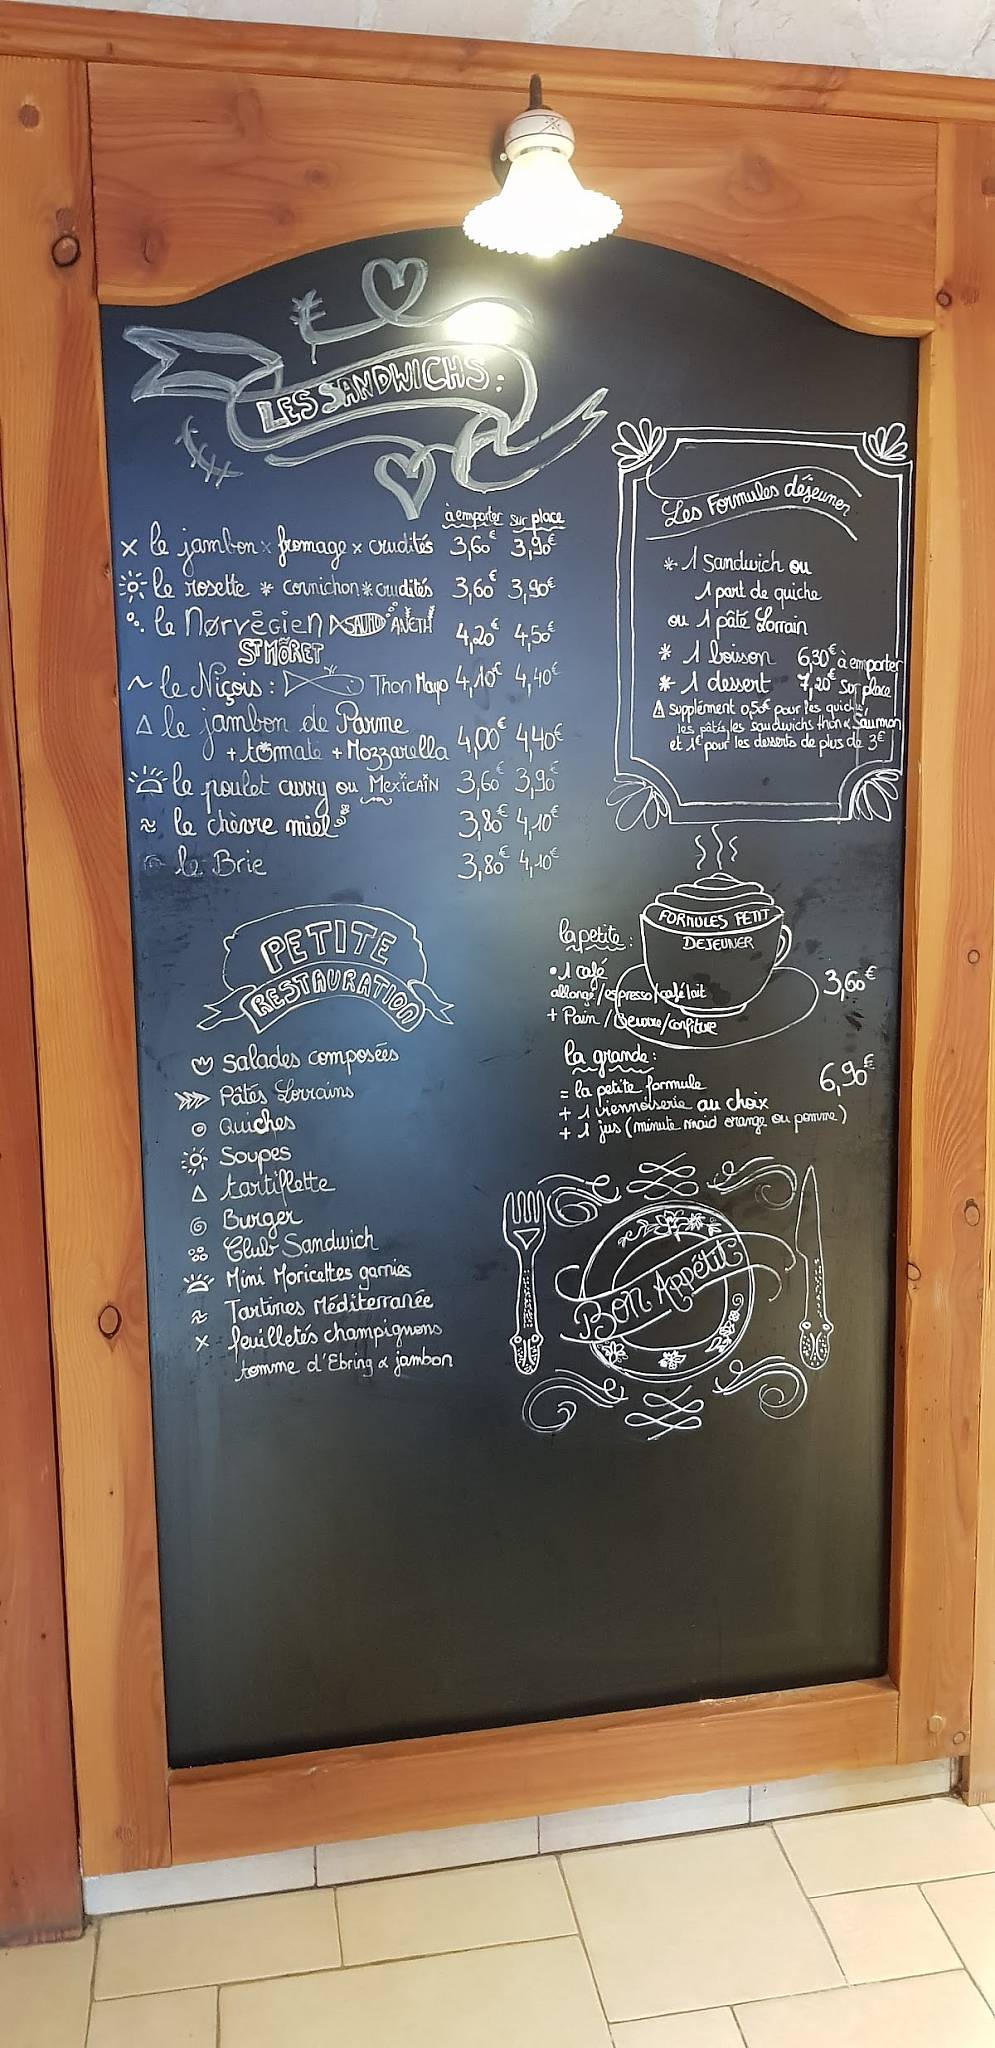 LES SANDWICHS :
à emporter sur place
le jambon x fromage x crudités 3,60€ 3,90€
le rosette * cornichon * crudités 3,60€ 3,90€
le Nørvégien SAUMO ANETH 4,20€ 4,50€
ST MÕRET
le Niçois : Thon Mayo 4,10€ 4,40€
le jambon de Parme
+ tomate + Mozzarella 4,00€ 4,40€
le poulet curry ou MEXICAIN 3,60€ 3,90€
le chèvre miel 3,80€ 4,10€
le Brie 3,80€ 4,10€
Les Formules déjeuner
* 1 sandwich ou
1 part de quiche
ou 1 pâté Lorrain
* 1 boisson 6,30€ à emporter
* 1 dessert 7,20€ sur place
supplément 0,50€ pour les quiche,
les pâtés, les sandwichs thon & saumon
et 1€ pour les desserts de plus de 3€
PETITE
RESTAURATION
Salades composées
Pâtés Lorrains
Quiches
Soupes
tartiflette
Burger
Club Sandwich
Mini Moricettes garnies
Tartines Méditerranée
feuilletés champignons
tomme d'Ebring & jambon
FORMULES PETIT
DEJEUNER
la petite :
• 1 café
allongé/espresso/café lait 3,60€
+ Pain / Beurre/confiture
la grande :
= la petite formule 6,90€
+ 1 viennoiserie au choix
+ 1 jus (minute maid orange ou pomme)
Bon Appétit